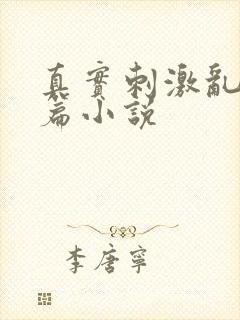 真實刺激亂
篇小説
李唐寧